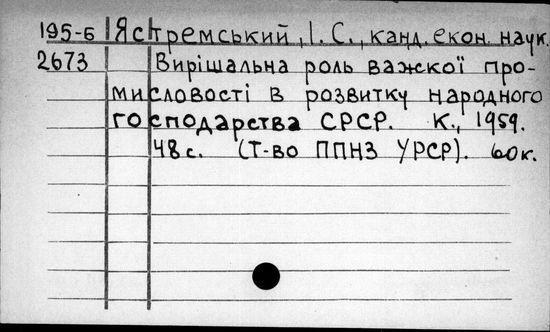 195-6 Ястремський, І. С., канд. екон. наук.
2673 Вирішальна роль важкої про-
мисловості в розвитку народного
господарства СРСР. К., 1959.
48 с. (Т-во ППНЗ УРСР). 60 к.